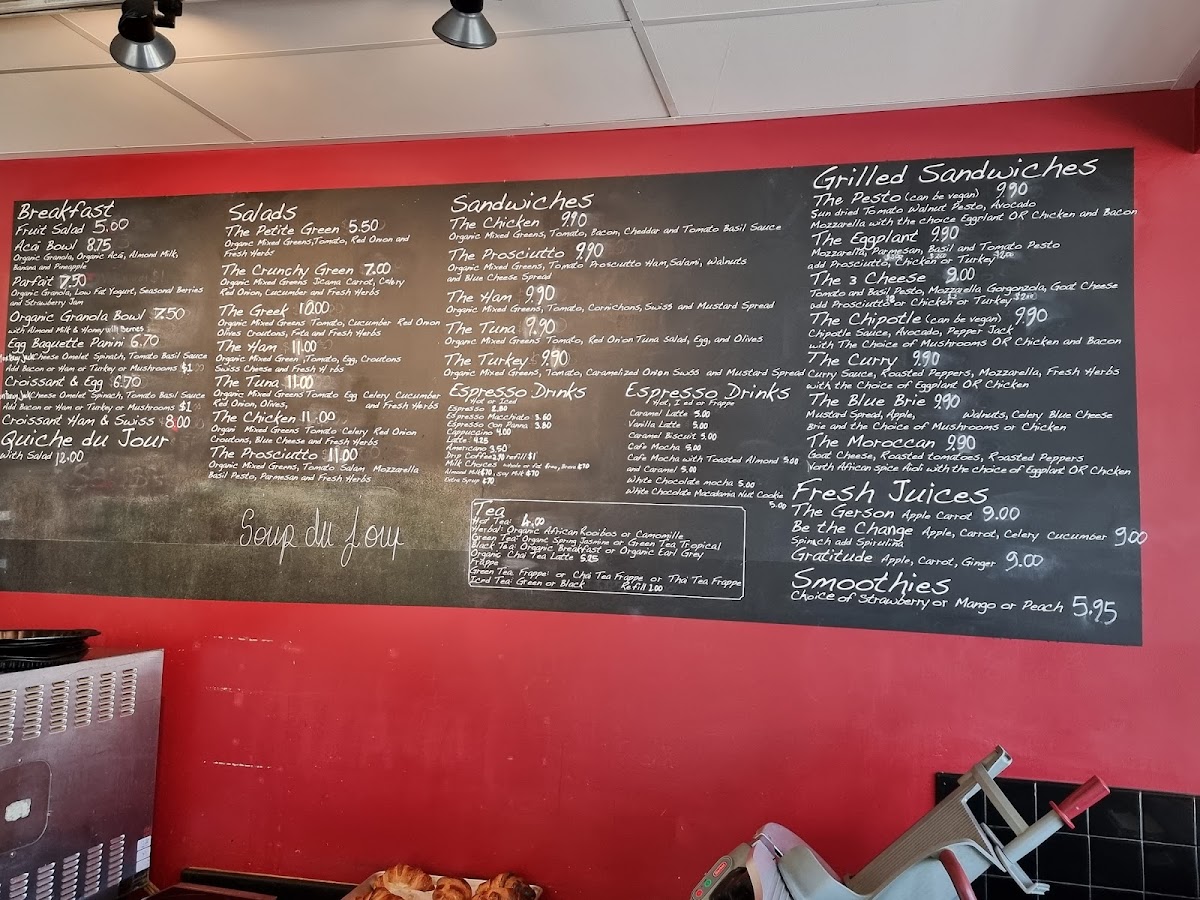 Breakfast
Fruit Salad 5.00
Acai Bowl 8.75
Organic Granola, Organic Acai, Almond Milk,
Banana and Pineapple
Parfait 7.50
Organic Granola, Low Fat Yogurt, Seasonal Berries
and Strawberry Jam
Organic Granola Bowl 7.50
with Almond Milk & Honey with Berries
Egg Baguette Panini 6.70
Cheese Omelet Spinach, Tomato Basil Sauce
Add Bacon or Ham or Turkey or Mushrooms $1
Croissant & Egg 6.70
Cheese Omelet Spinach, Tomato Basil Sauce
Add Bacon or Ham or Turkey or Mushrooms $1
Croissant Ham & Swiss 8.00
Quiche du Jour
With Salad 12.00
Salads
The Petite Green 5.50
Organic Mixed Greens, Tomato, Red Onion and
Fresh Herbs
The Crunchy Green 7.00
Organic Mixed Greens Jicama Carrot, Celery
Red Onion, Cucumber and Fresh Herbs
The Greek 10.00
Organic Mixed Greens Tomato, Cucumber Red Onion
Olives Croutons, Feta and Fresh Herbs
The Ham 11.00
Organic Mixed Green, Tomato, Egg, Croutons
Swiss Cheese and Fresh H rbs
The Tuna 11.00
Organic Mixed Greens Tomato Egg Celery Cucumber
Red Onion, Olives, and Fresh Herbs
The Chicken 11.00
Organi Mixed Greens Tomato Celery Red Onion
Croutons, Blue Cheese and Fresh Herbs
The Prosciutto 11.00
Organic Mixed Greens, Tomato Salami Mozzarella
Basil Pesto, Parmesan and Fresh Herbs
Soup du Jour
Sandwiches
The Chicken 9.90
Organic Mixed Greens, Tomato, Bacon, Cheddar and Tomato Basil Sauce
The Prosciutto 9.90
Organic Mixed Greens, Tomato Prosciutto Ham, Salami, Walnuts
and Blue Cheese Spread
The Ham 9.90
Organic Mixed Greens, Tomato, Cornichons, Swiss and Mustard Spread
The Tuna 9.90
Organic Mixed Greens Tomato, Red Onion Tuna Salad, Egg, and Olives
The Turkey 9.90
Organic Mixed Greens, Tomato, Caramelized Onion Swiss and Mustard Spread
Espresso Drinks
Hot or Iced
Espresso 2.80
Espresso Macchiato 3.60
Espresso Con Panna 3.80
Cappuccino 4.00
Latte 4.25
Americano 3.50
Drip Coffee 2.70 refill $1
Milk Choices Whole or Fat Free,
Almond Milk $.70, Soy Milk $.70
Extra Syrup $.70
Espresso Drinks
Hot, Iced or Frappe
Caramel Latte 5.00
Vanilla Latte 5.00
Caramel Biscuit 5.00
Cafe Mocha 5.00
Cafe Mocha with Toasted Almond 5.00
and Caramel 5.00
White Chocolate mocha 5.00
White Chocolate Macadamia Nut Cookie
5.00
Tea
Hot Tea: 4.00
Herbal: Organic African Rooibos or Camomille
Green Tea: Organic Spring Jasmine or Green Tea Tropical
Black Tea: Organic Breakfast or Organic Earl Grey
Organic Chai Tea Latte 5.25
Frappe
Green Tea Frappe: or Chai Tea Frappe or Thai Tea Frappe
Iced Tea: Green or Black Refill 1.00
Grilled Sandwiches
The Pesto (can be vegan) 9.90
Sun dried Tomato Walnut Pesto, Avocado
Mozzarella with the choice Eggplant OR Chicken and Bacon
The Eggplant 9.90
Mozzarella, Parmesan, Basil and Tomato Pesto
add Prosciutto, Chicken or Turkey $2.00
The 3 Cheese 9.00
Tomato and Basil Pesto, Mozzarella Gorgonzola, Goat Cheese
add Prosciutto or Chicken or Turkey $2.00
The Chipotle (can be vegan) 9.90
Chipotle Sauce, Avocado, Pepper Jack
with The Choice of Mushrooms OR Chicken and Bacon
The Curry 9.90
Curry Sauce, Roasted Peppers, Mozzarella, Fresh Herbs
with the Choice of Eggplant OR Chicken
The Blue Brie 9.90
Mustard Spread, Apple, Walnuts, Celery Blue Cheese
Brie and the Choice of Mushrooms or Chicken
The Moroccan 9.90
Goat Cheese, Roasted tomatoes, Roasted Peppers
North African spice Aioli with the choice of Eggplant OR Chicken
Fresh Juices
The Gerson Apple Carrot 9.00
Be the Change Apple, Carrot, Celery Cucumber 9.00
Spinach add Spirulina
Gratitude Apple, Carrot, Ginger 9.00
Smoothies
Choice of Strawberry or Mango or Peach 5.95